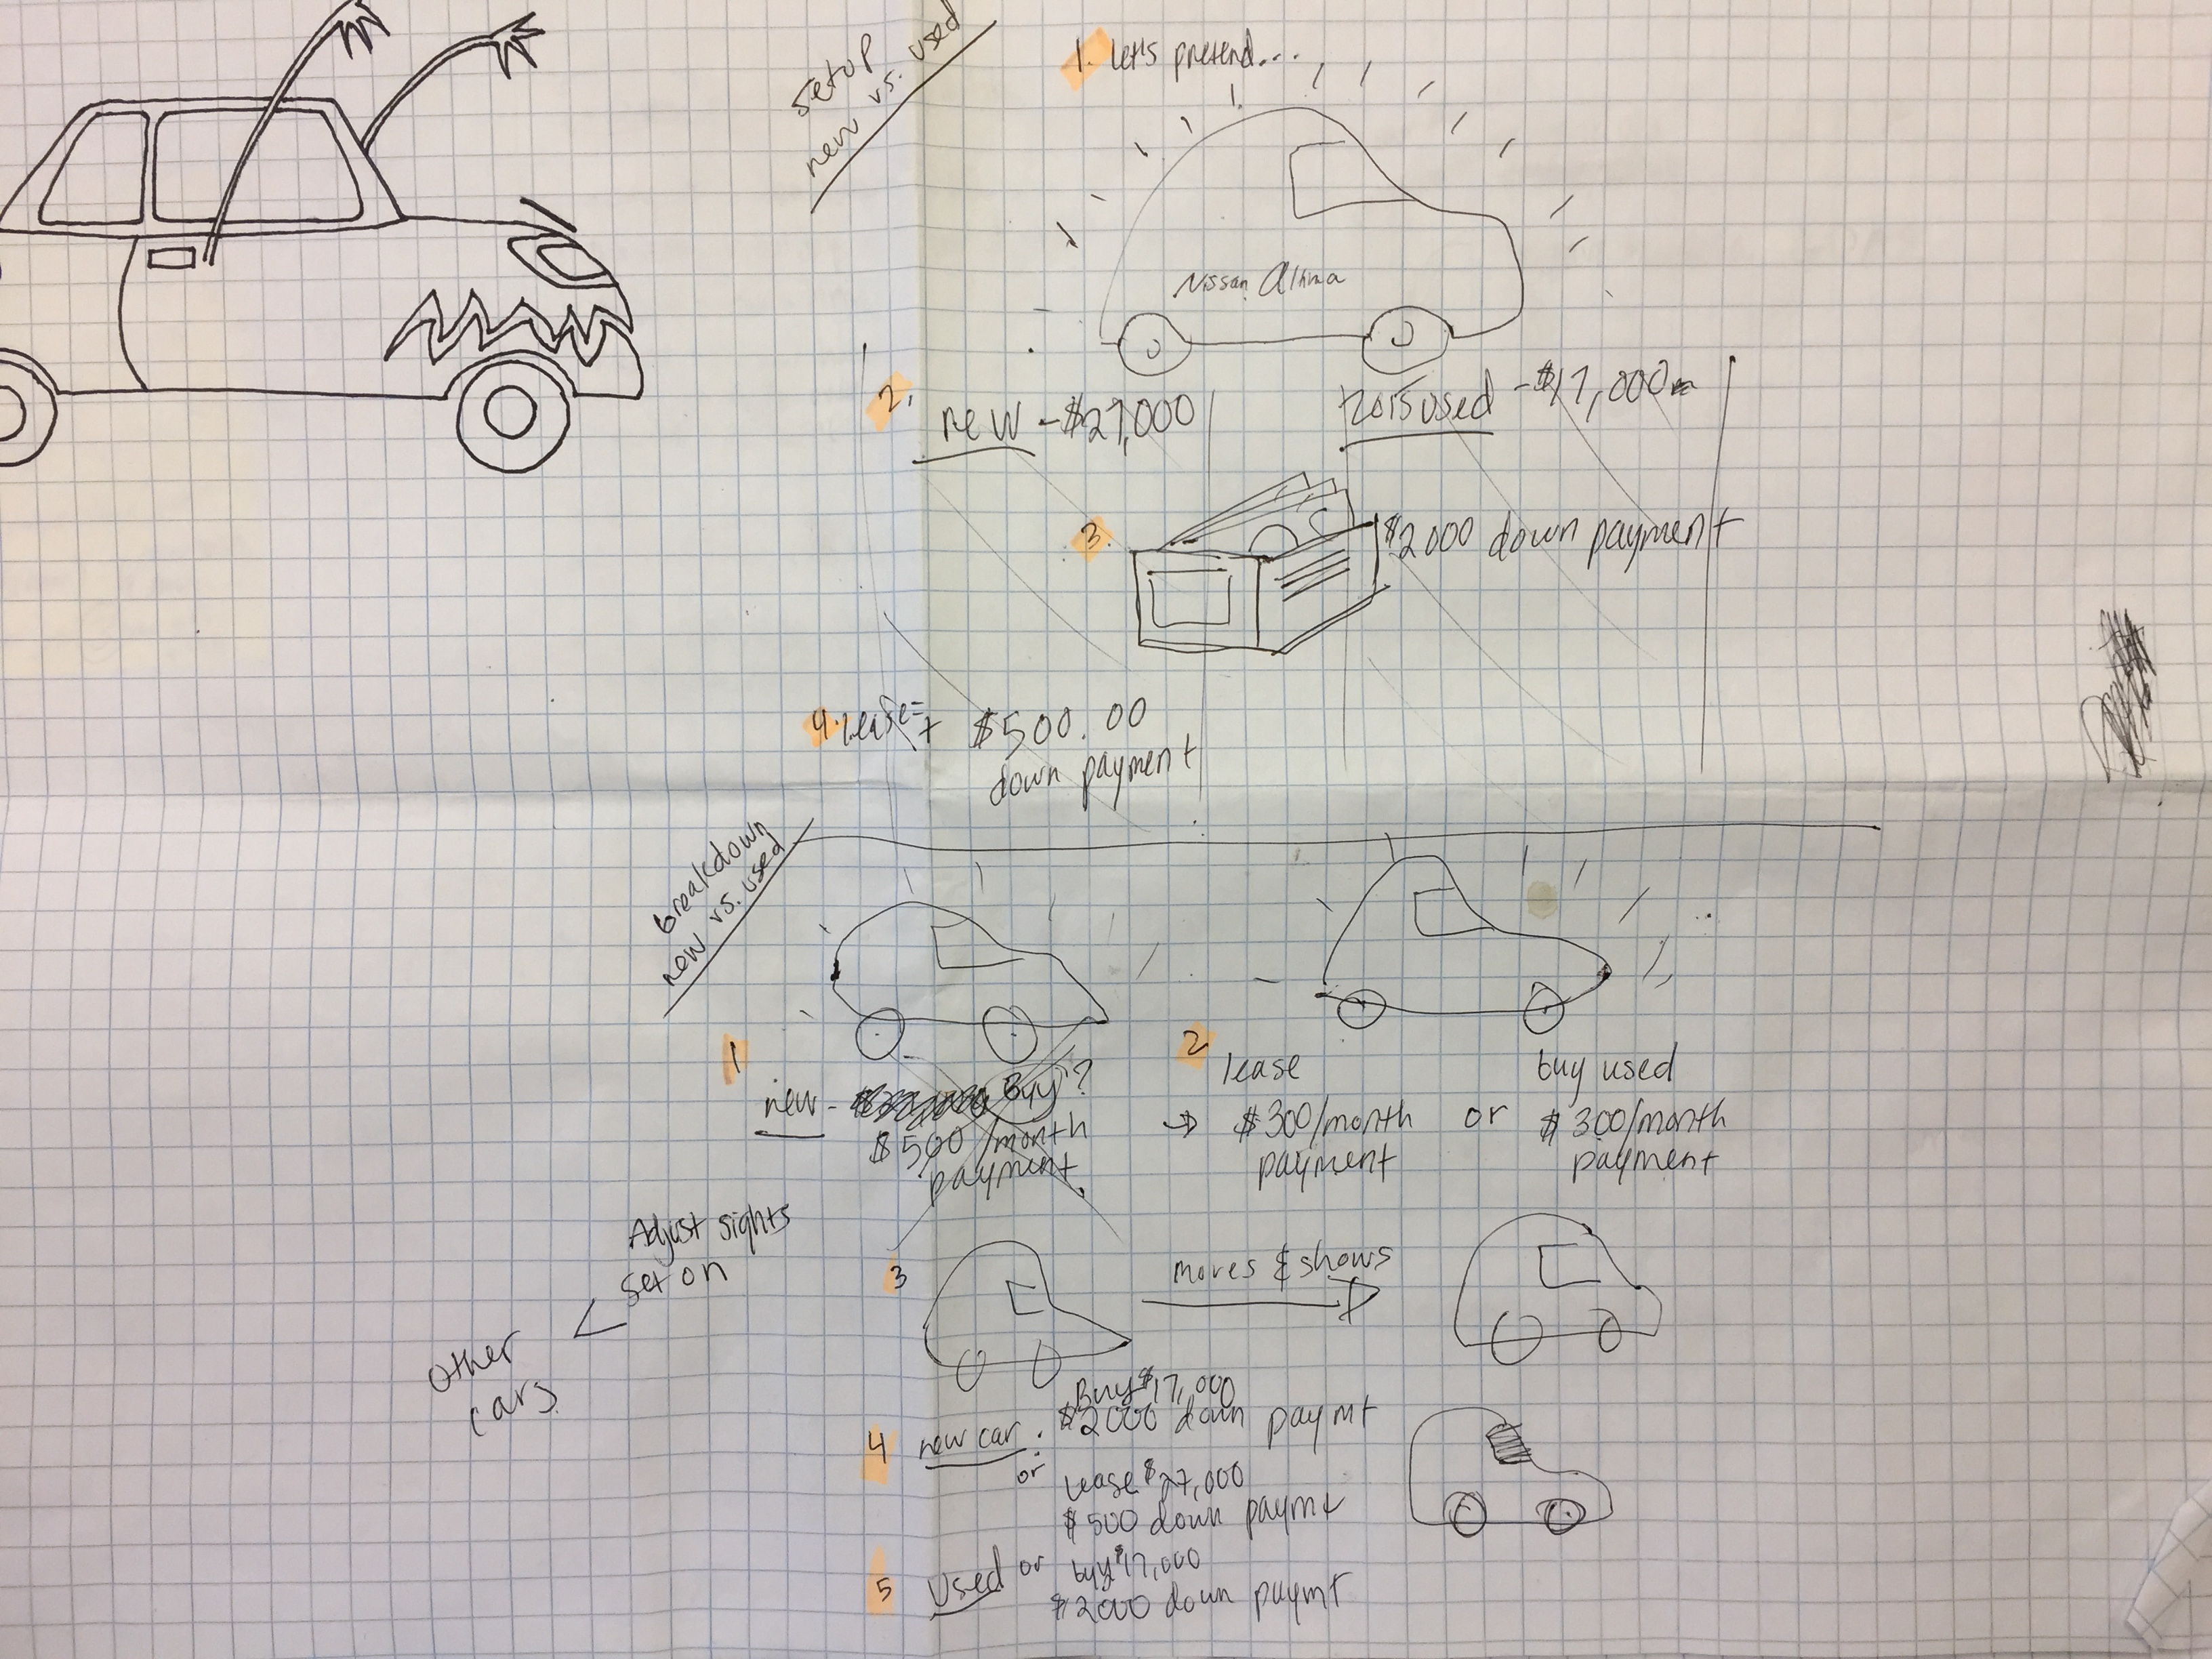 setup
new vs. used
1. let's pretend...
Nissan Altima
2. new - $27,000
2015 used - $17,000
3. $2000 down payment
4. lease = + $500.00
down payment
breakdown
new vs. used
1
new - Buy?
$500/month
payment
2
lease
→ $300/month
payment
or
buy used
$300/month
payment
Adjust sights
set on
other
cars
3
moves & shows
Buy $17,000
4 new car: $2000 down paymt
or
Lease $27,000
$500 down paymt
5 Used or buy $17,000
$2000 down paymt